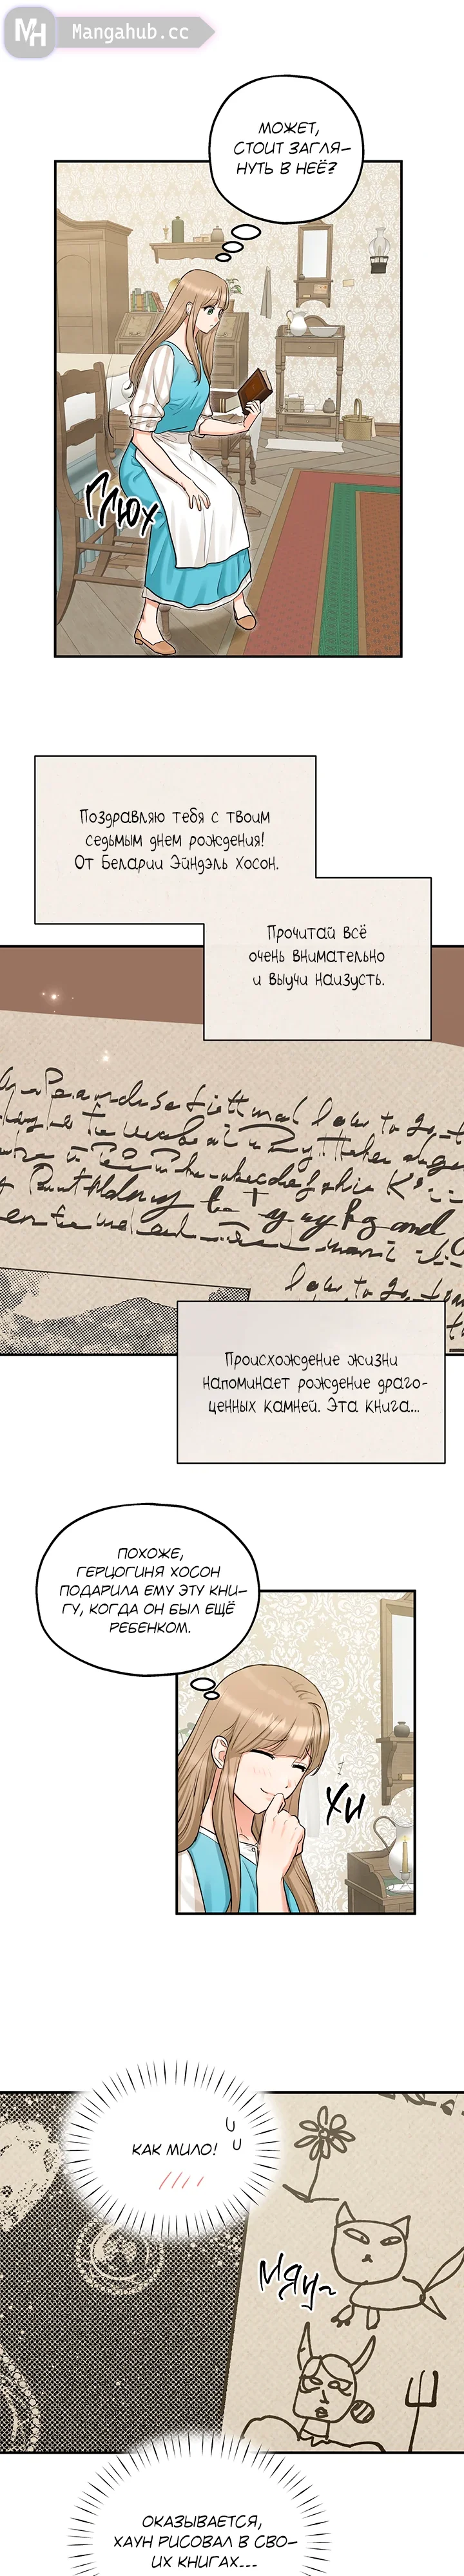 Mangahub.cc
МОЖЕТ,
СТОИТ ЗАГЛЯ-
НУТЬ В НЕЁ?
ПЛЮХ
Поздравляю тебя с твоим
седьмым днем рождения!
От Беларии Эйндэль Хосон.
Прочитай всё
очень внимательно
и выучи наизусть.
Происхождение жизни
напоминает рождение драго-
ценных камней. Эта книга...
ПОХОЖЕ,
ГЕРЦОГИНЯ ХОСОН
ПОДАРИЛА ЕМУ ЭТУ КНИ-
ГУ, КОГДА ОН БЫЛ ЕЩЁ
РЕБЕНКОМ.
ХИ
КАК МИЛО!
МЯУ~
ОКАЗЫВАЕТСЯ,
ХАУН РИСОВАЛ В СВО-
ИХ КНИГАХ...